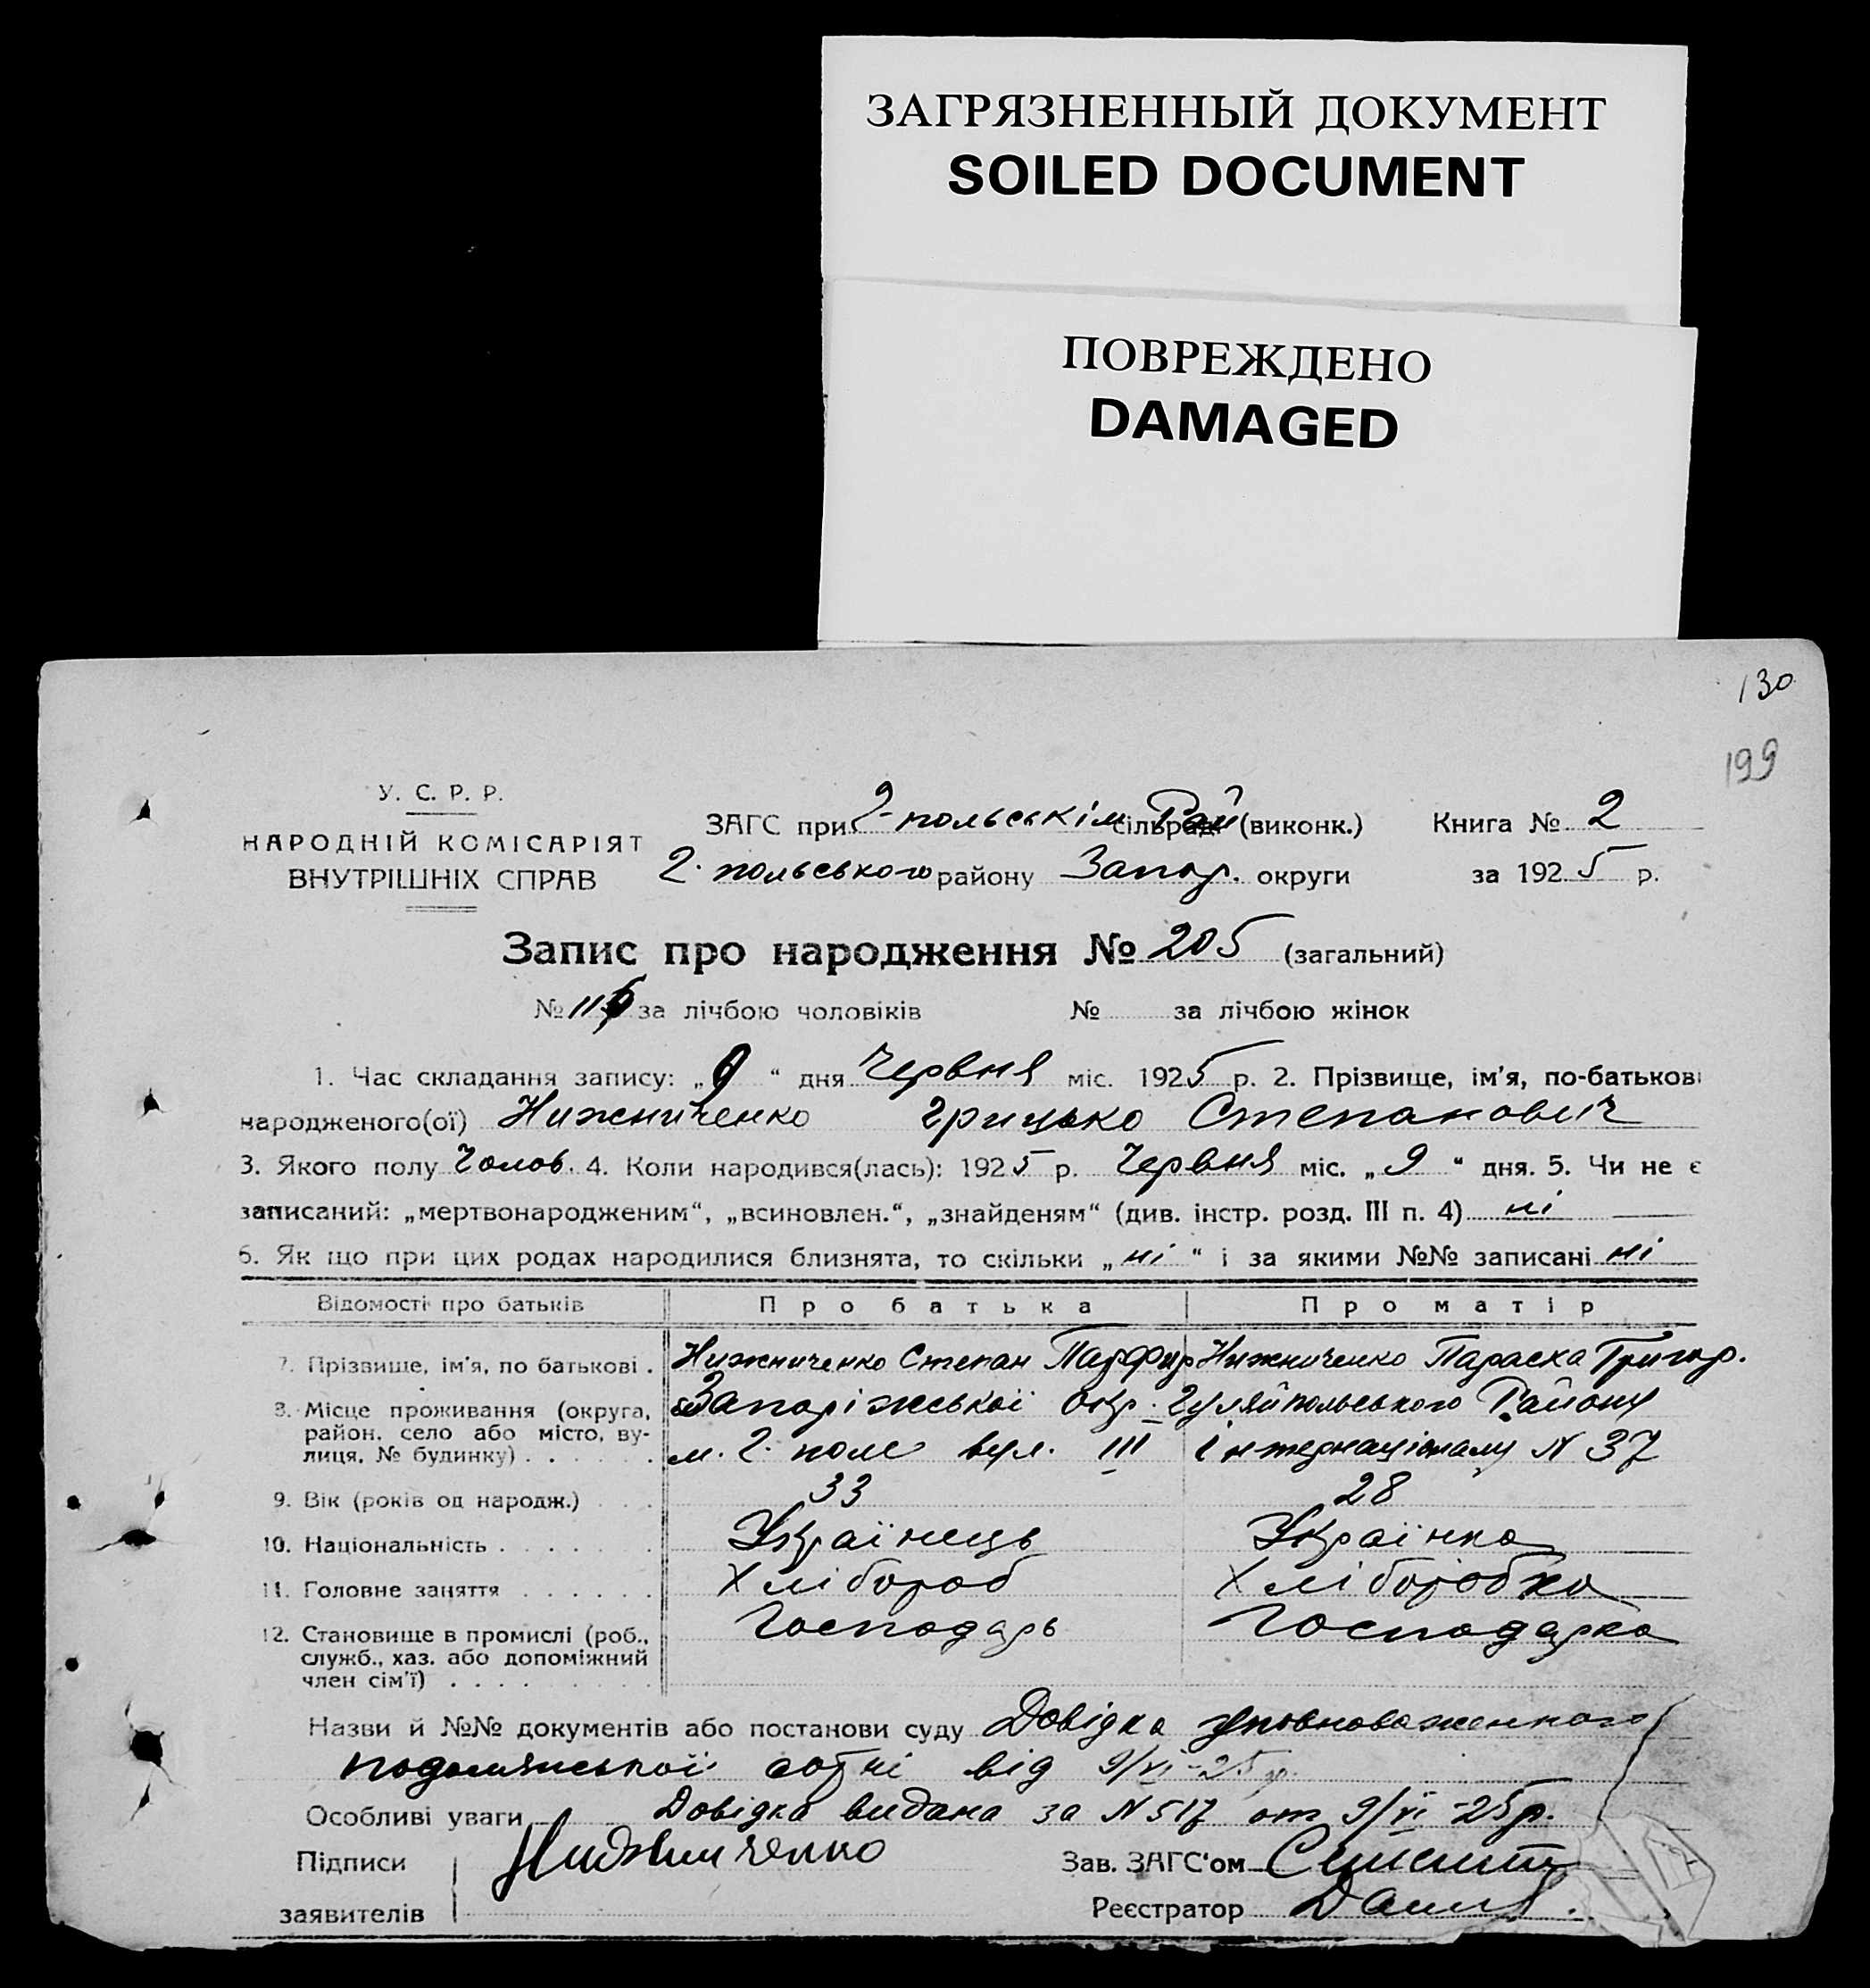 ЗАГРЯЗНЕННЫЙ ДОКУМЕНТ
SOILED DOCUMENT
ПОВРЕЖДЕНО
DAMAGED
130
199
У. С. Р. Р.
НАРОДНІЙ КОМІСАРІЯТ
ВНУТРІШНІХ СПРАВ
ЗАГС при Г-польськім Рай сільрад (виконк.) Книга № 2
Г. польського району Запор. округи за 1925 р.
Запис про народження № 205 (загальний)
№ 116 за лічбою чоловіків № за лічбою жінок
1. Час складання запису: „9“ дня Червня міс. 1925 р. 2. Прізвище, ім'я, по-батькові
народженого(ої) Нижниченко Грицько Степанович
3. Якого полу Чолов. 4. Коли народився(лась): 1925 р. Червня міс. „9“ дня. 5. Чи не є
записаний: „мертвонародженим“, „всиновлен.“, „знайденям“ (див. інстр. розд. III п. 4) ні
6. Як що при цих родах народилися близнята, то скільки „ні“ і за якими №№ записані ні
Відомості про батьків Про батька Про матір
7. Прізвище, ім'я, по батькові . Нижниченко Степан Парфир Нижниченко Параска Григор.
8. Місце проживання (округа, Запоріжської окр. Гуляйпольського Району
район, село або місто, ву-
лиця, № будинку) . . . . . . м. Г. поле вул. III інтернаціоналу N 37
9. Вік (років од народж.) . . . 33 28
10. Національність . . . . . . Українець Українка
11. Головне заняття . . . . . . Хлібороб Хліборобка
12. Становище в промислі (роб., Господарь Господарка
служб., хаз. або допоміжний
член сім'ї) . . . . . . . . .
Назви й №№ документів або постанови суду Довідка уповноваженного
подолянської сотні від 9/VI-25 р.
Особливі уваги Довідка видана за N 517 от 9/VI-25 р.
Підписи Нижниченко Зав. ЗАГС'ом
заявителів Реєстратор